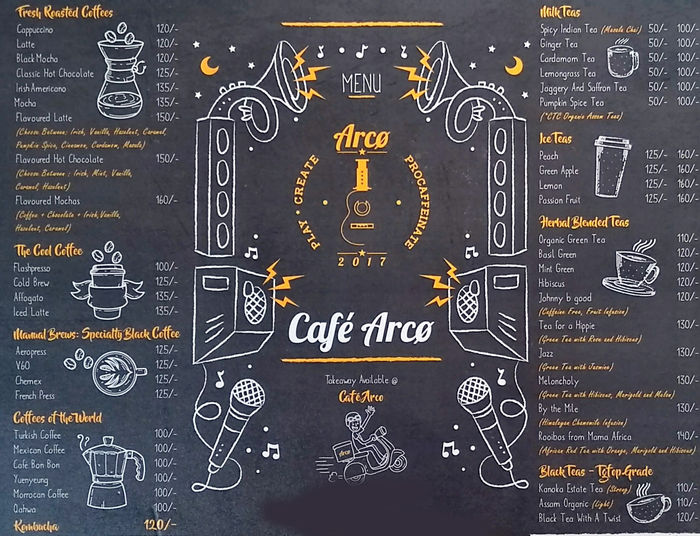 Fresh Roasted Coffees
Cappuccino 120/-
Latte 120/-
Black Mocha 120/-
Classic Hot Chocolate 125/-
Irish Americano 135/-
Mocha 135/-
Flavoured Latte 150/-
(Choose Between: Irish, Vanilla, Hazelnut, Caramel,
Pumpkin Spice, Cinnamon, Cardamom, Masala)
Flavoured Hot Chocolate 150/-
(Choose Between : Irish, Mint, Vanilla,
Caramel, Hazelnut)
Flavoured Mochas 160/-
(Coffee + Chocolate + Irish, Vanilla,
Hazelnut, Caramel)
The Cool Coffee
Flashpresso 100/-
Cold Brew 125/-
Affogato 135/-
Iced Latte 135/-
Manual Brews: Specialty Black Coffee
Aeropress 125/-
V60 125/-
Chemex 125/-
French Press 125/-
Coffees of the World
Turkish Coffee 100/-
Mexican Coffee 100/-
Café Bon Bon 100/-
Yuenyeung 100/-
Morrocan Coffee 100/-
Qahwa 100/-
Kombucha 120/-
MENU
Arcø
PLAY • CREATE
PROCAFFEINATE
2017
Café Arcø
Takeaway Available @
Café Arco
Arcø
Milk Teas
Spicy Indian Tea (Masala Chai) 50/- 100/-
Ginger Tea 50/- 100/-
Cardamom Tea 50/- 100/-
Lemongrass Tea 50/- 100/-
Jaggery And Saffron Tea 50/- 100/-
Pumpkin Spice Tea 50/- 100/-
(*CTC Organic Assam Teas)
Ice Teas
Peach 125/- 160/-
Green Apple 125/- 160/-
Lemon 125/- 160/-
Passion Fruit 125/- 160/-
Herbal Blended Teas
Organic Green Tea 110/-
Basil Green 120/-
Mint Green 120/-
Hibiscus 120/-
Johnny b good 120/-
(Caffeine Free, Fruit Infusion)
Tea for a Hippie 130/-
(Green Tea with Rose and Hibiscus)
Jazz 130/-
(Green Tea with Jasmine)
Meloncholy 130/-
(Green Tea with Hibiscus, Marigold and Melon)
By the Mile 130/-
(Himalayan Chamomile Infusion)
Rooibos from Mama Africa 140/-
(African Red Tea with Orange, Marigold and Hibiscus)
Black Teas - Tgfop Grade
Kanoka Estate Tea (Strong) 110/-
Assam Organic (Light) 110/-
Black Tea With A Twist 120/-